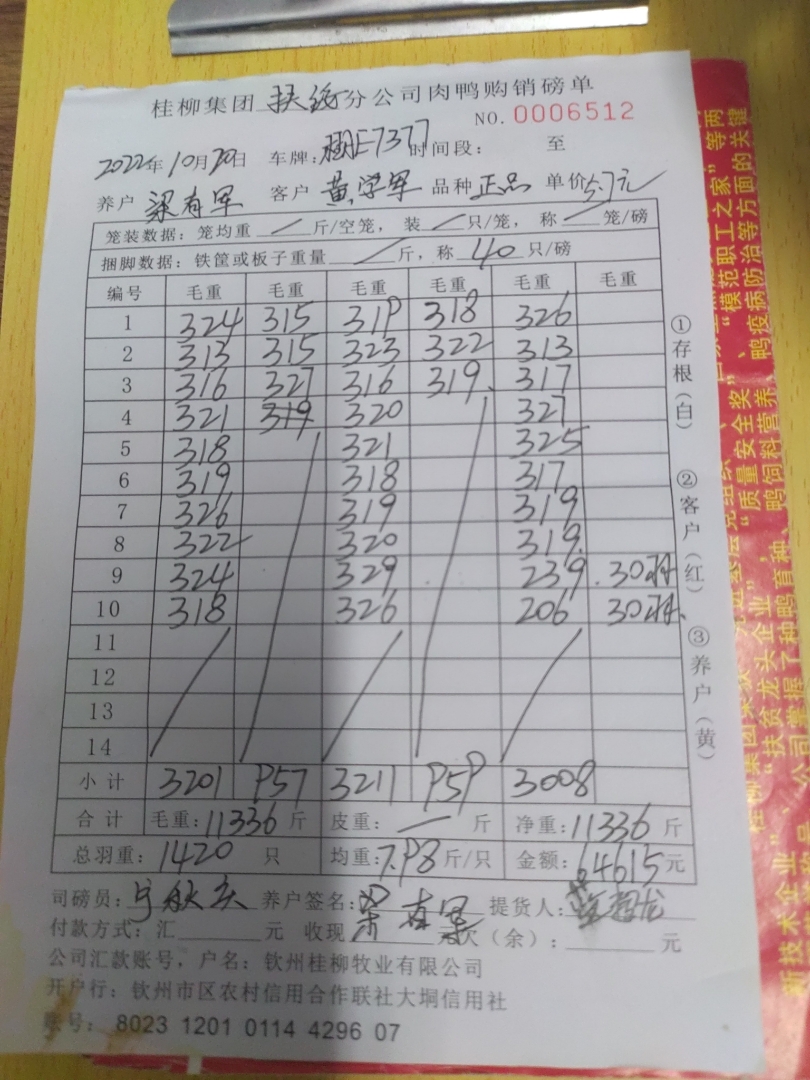 桂柳集团 扶绥 分公司肉鸭购销磅单
NO. 0006512
2022年10月20日 车牌:桂E7377 时间段: 至
养户 梁有军 客户 黄学军 品种 正品 单价 5.7元
笼装数据: 笼均重 / 斤/空笼, 装 / 只/笼, 称 / 笼/磅
捆脚数据: 铁筐或板子重量 / 斤, 称 40 只/磅
编号 毛重 毛重 毛重 毛重 毛重
1 324 315 319 318 326
2 313 315 323 322 313
3 316 327 316 319 317
4 321 319 320 327
5 318 321 325
6 319 318 317
7 326 319 319
8 322 320 319
9 324 329 239 30羽
10 318 326 206 30羽
11
12
13
14
小计 3201 957 3211 959 3008
合计 毛重: 11336 斤 皮重: — 斤 净重: 11336 斤
总羽重: 1420 只 均重: 7.98 斤/只 金额: 64615 元
司磅员: 养户签名: 梁有军 提货人:
付款方式: 汇 元 收现 元欠(余): 元
公司汇款账号, 户名: 钦州桂柳牧业有限公司
开户行: 钦州市区农村信用合作联社大垌信用社
账号: 8023 1201 0114 4296 07
①存根(白)
②客户(红)
③养户(黄)
"模范职工之家"等两
"质量安全奖"、
鸭饲料营养、鸭疫病防治等方面的关键
"扶贫龙头企业"
公司掌握了种鸭育种、
新技术企业